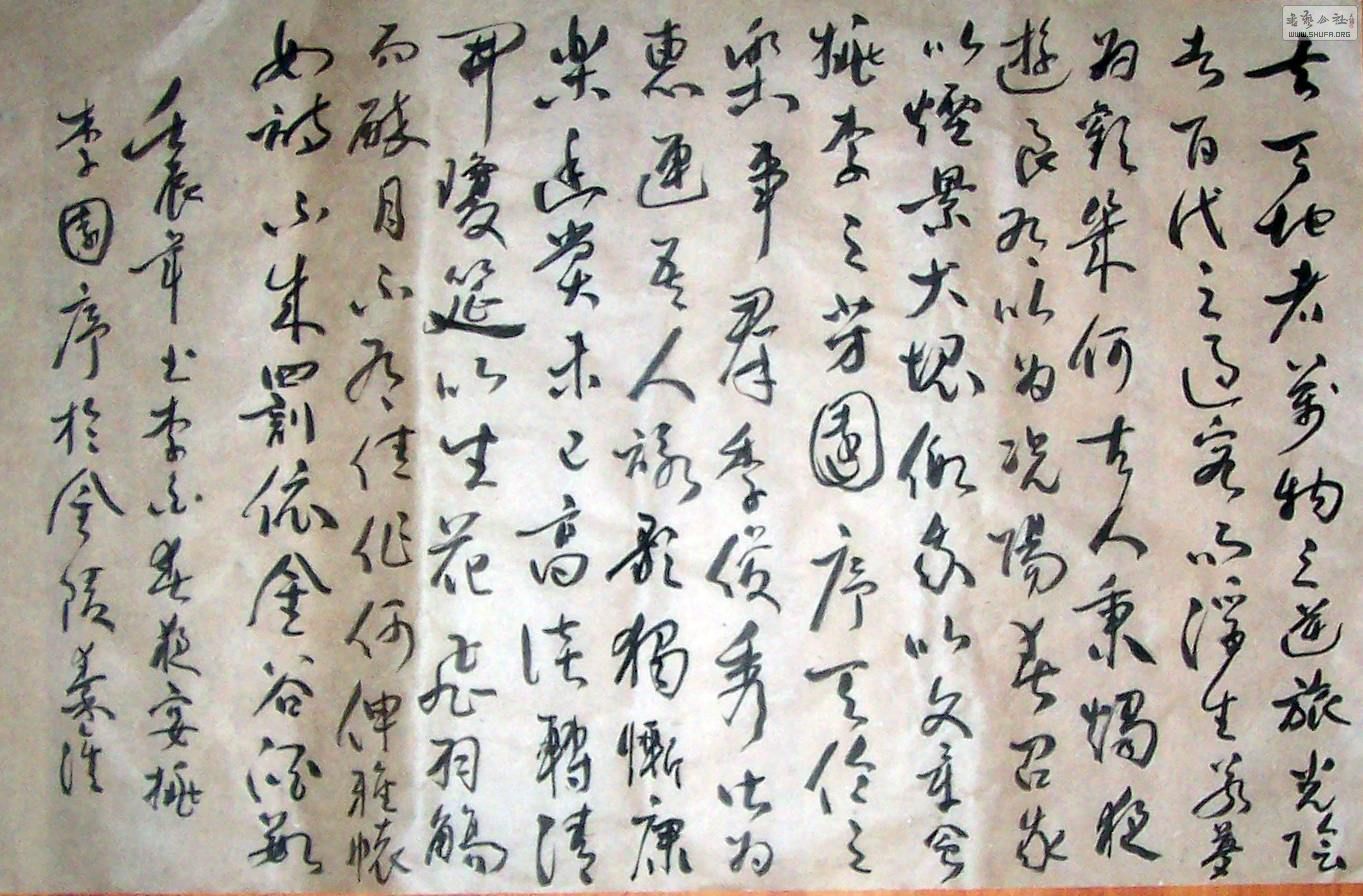 夫天地者萬物之逆旅光陰
者百代之過客而浮生若夢
為歡幾何古人秉燭夜
遊良有以為況陽春召我
以煙景大塊假我以文章會
桃李之芳園序天倫之
樂事群季俊秀皆為
惠連吾人詠歌獨慚康
樂幽賞未已高談轉清
開瓊筵以坐花飛羽觴
而醉月不有佳作何伸雅懷
如詩不成罰依金谷酒數
壬辰年書李白春夜宴桃
李園序於金陵秦淮
书艺公社
WWW.SHUFA.ORG